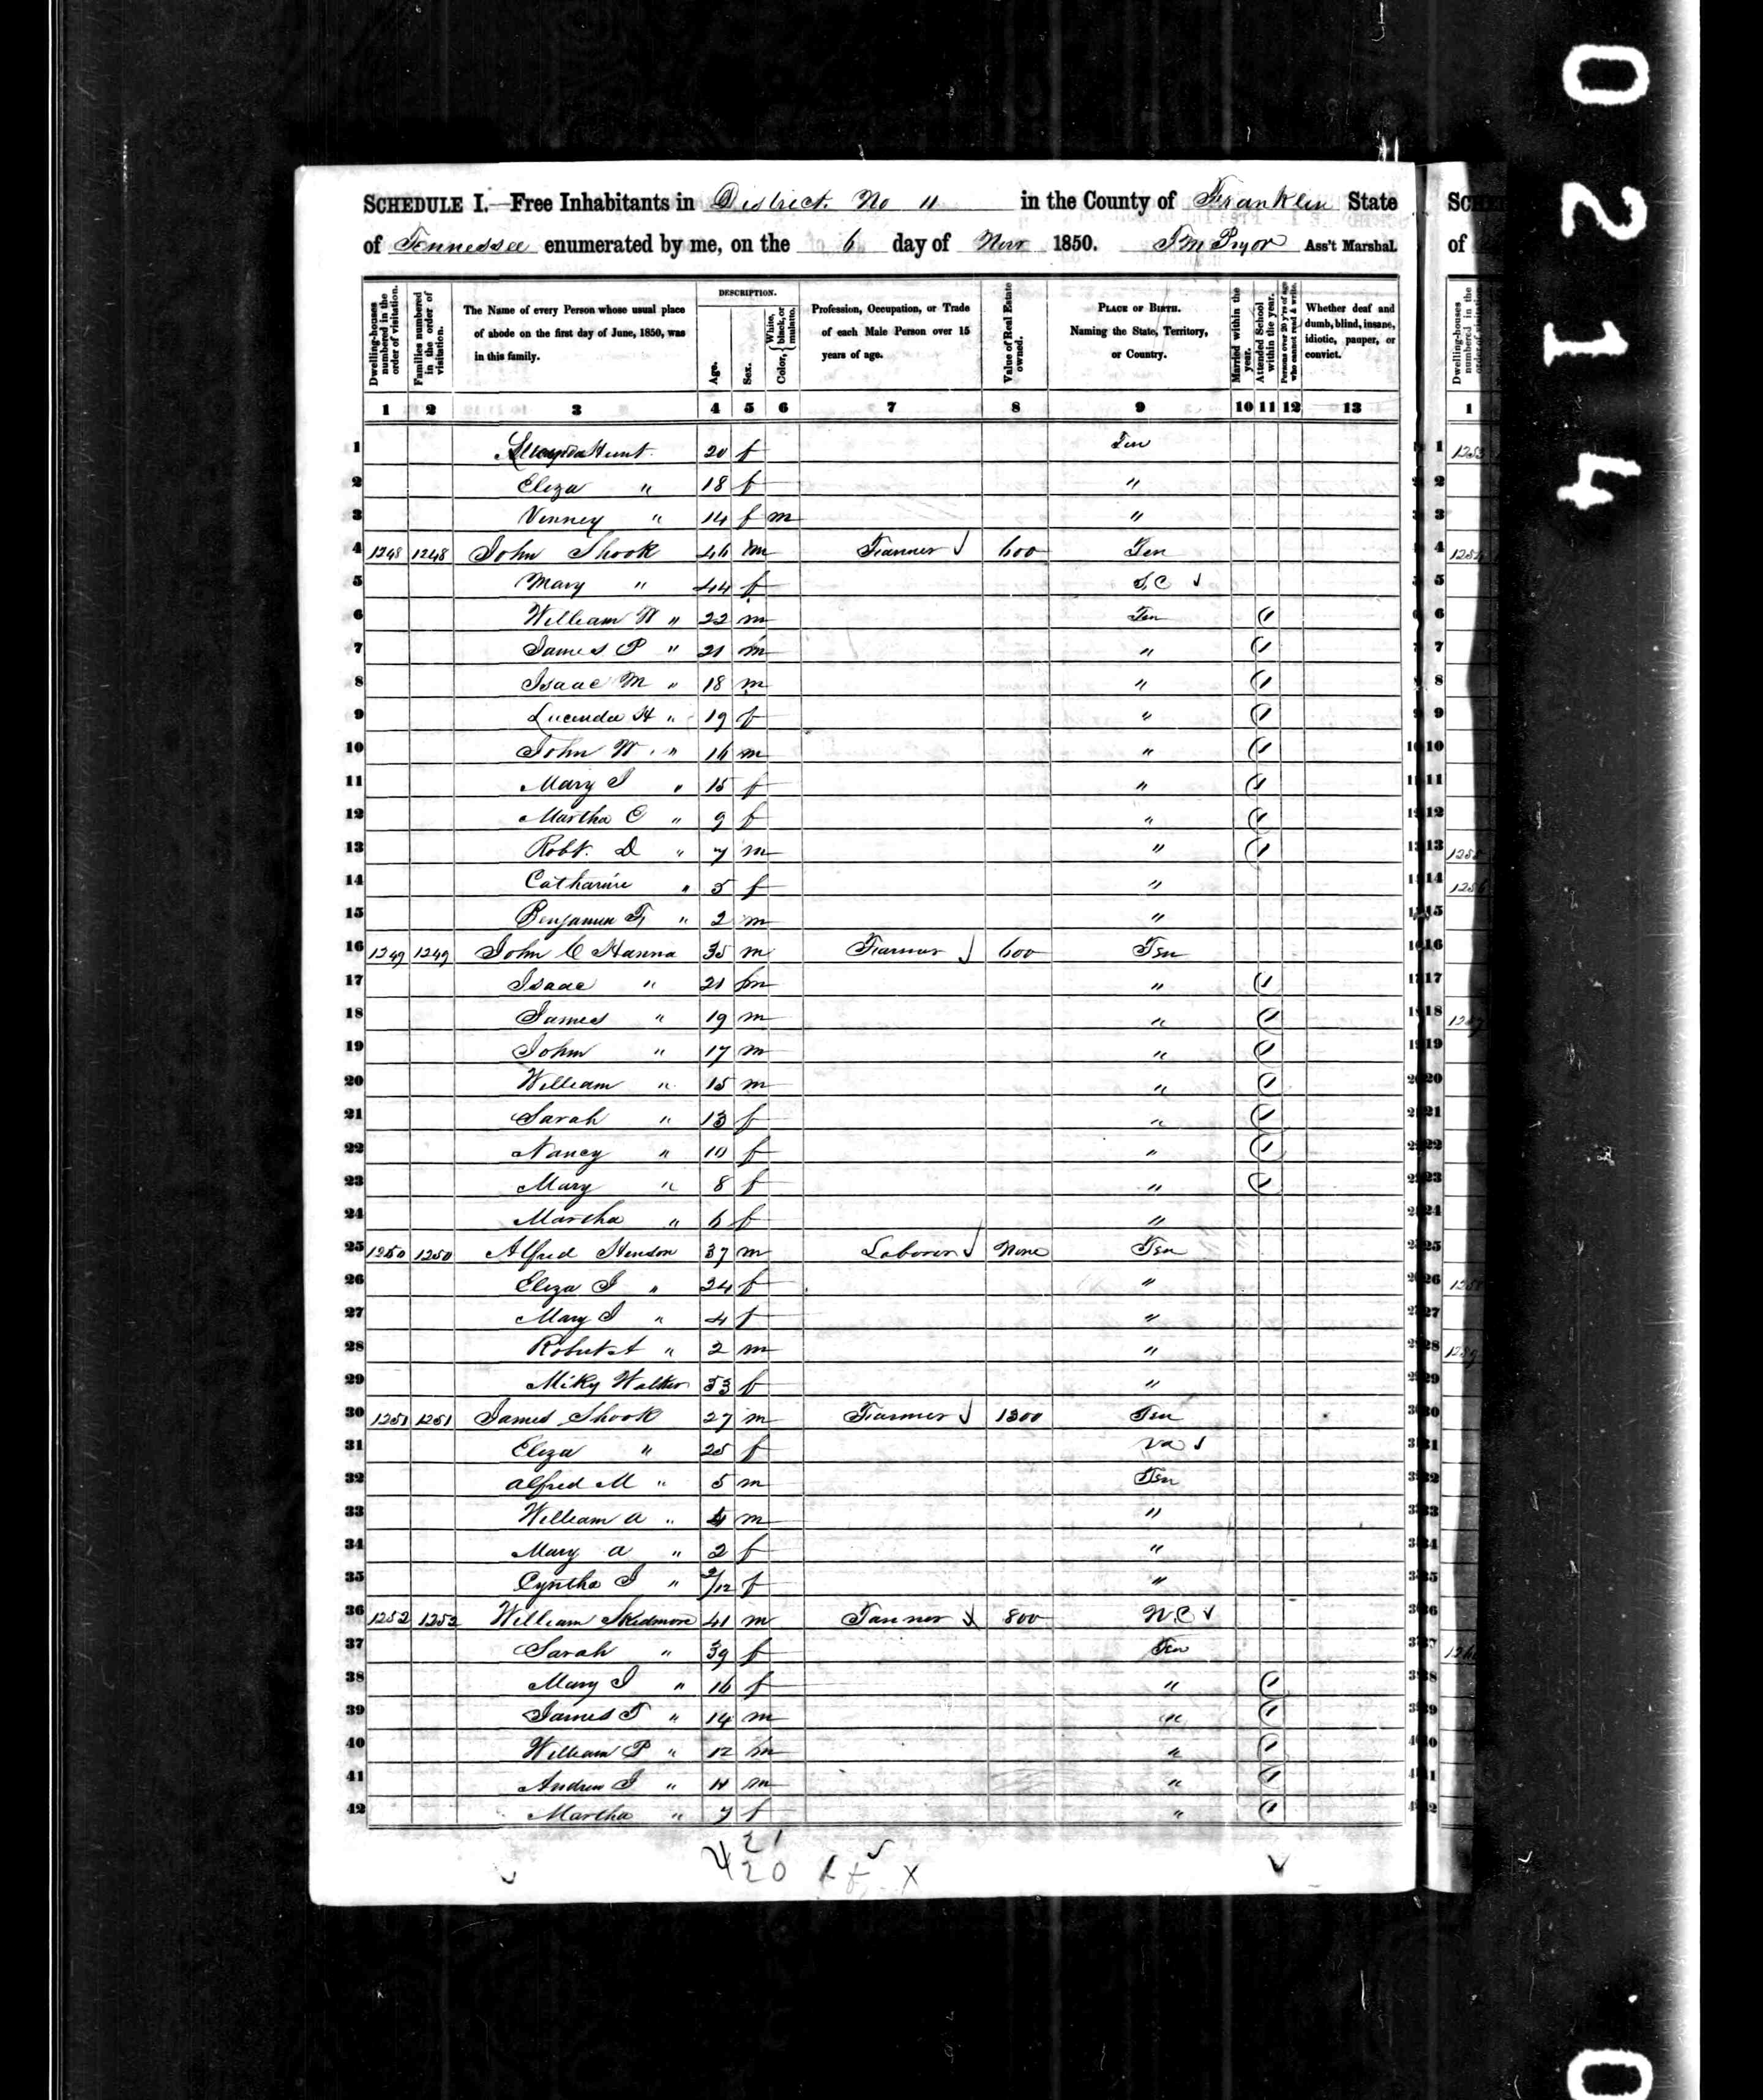 SCHEDULE I.—Free Inhabitants in District No 11 in the County of Franklin State
of Tennessee enumerated by me, on the 6 day of Nov 1850. Ass't Marshal.
Dwelling-houses numbered in the order of visitation.
Families numbered in the order of visitation.
The Name of every Person whose usual place of abode on the first day of June, 1850, was in this family.
DESCRIPTION.
Age.
Sex.
Color, White, black, or mulatto.
Profession, Occupation, or Trade of each Male Person over 15 years of age.
Value of Real Estate owned.
PLACE OF BIRTH. Naming the State, Territory, or Country.
Married within the year.
Attended School within the year.
Persons over 20 y'rs of age who cannot read & write.
Whether deaf and dumb, blind, insane, idiotic, pauper, or convict.
1 2 3 4 5 6 7 8 9 10 11 12 13
1 Hunt 20 f Ten
2 Eliza " 18 f "
3 Vinney " 14 f m "
4 1248 1248 John Shook 46 m Farmer 600 Ten
5 Mary " 44 f S.C
6 William W " 22 m Ten 1
7 James P " 21 m " 1
8 Isaac M " 18 m " 1
9 Lucinda H " 19 f " 1
10 John W " 16 m " 1
11 Mary J " 15 f " 1
12 Martha C " 9 f " 1
13 Robt. D " 7 m " 1
14 Catharine " 5 f "
15 Benjamin F " 2 m "
16 1249 1249 John C Hanna 35 m Farmer 600 Ten
17 Isaac " 21 m " 1
18 James " 19 m " 1
19 John " 17 m " 1
20 William " 15 m " 1
21 Sarah " 13 f " 1
22 Nancy " 10 f " 1
23 Mary " 8 f " 1
24 Martha " 6 f "
25 1250 1250 Alfred Henson 37 m Laborer None Ten
26 Eliza J " 24 f "
27 Mary J " 4 f "
28 Robert A " 2 m "
29 Miky Walker 53 f "
30 1251 1251 James Shook 27 m Farmer 1300 Ten
31 Eliza " 25 f Va
32 Alfred M " 5 m Ten
33 William A " 4 m "
34 Mary A " 2 f "
35 Cyntha J " 2/12 f "
36 1252 1252 William Skidmore 41 m Tanner 800 N.C
37 Sarah " 39 f Ten
38 Mary J " 16 f " 1
39 James T " 14 m " 1
40 William P " 12 m " 1
41 Andrew J " 11 m " 1
42 Martha " 7 f " 1
21
20
0214